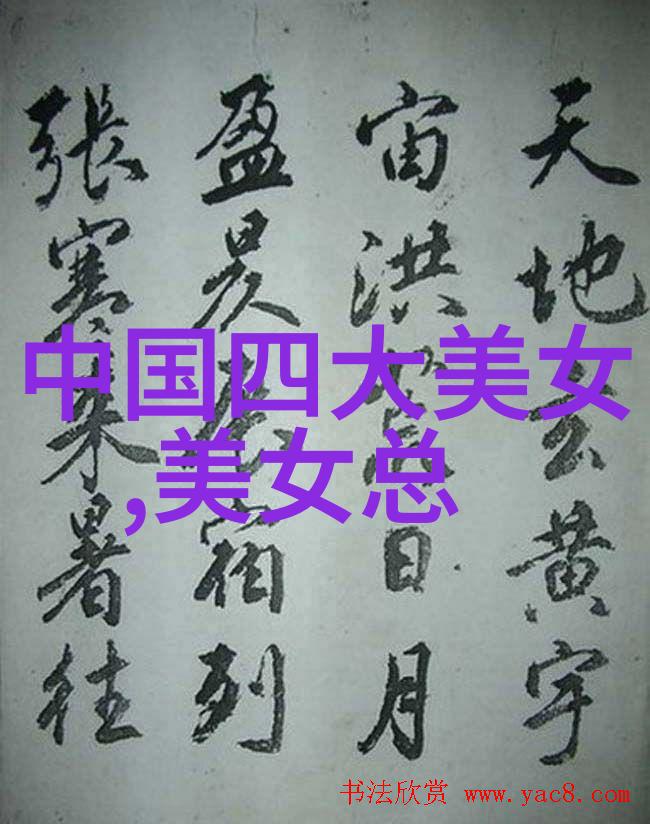 天地玄黄宇
宙洪荒日月
盈昃辰宿列
張寒来暑往
中国四大美女
,美女总
书法欣赏 www.yac8.com